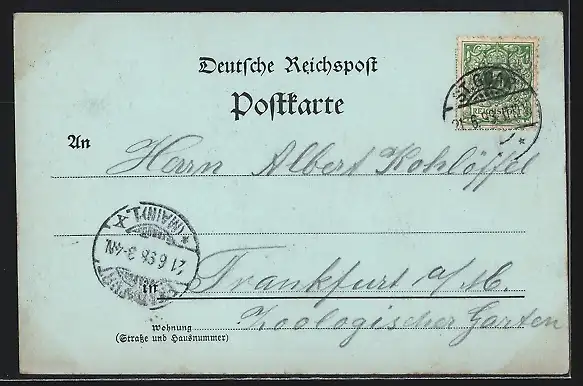 Deutsche Reichspost
Postkarte
An Herrn Albert Kohlöffel
(MAIN) 1.X
21 6 96 3-4N.
in Frankfurt a/M.
Wohnung Zoologischer Garten
(Straße und Hausnummer)